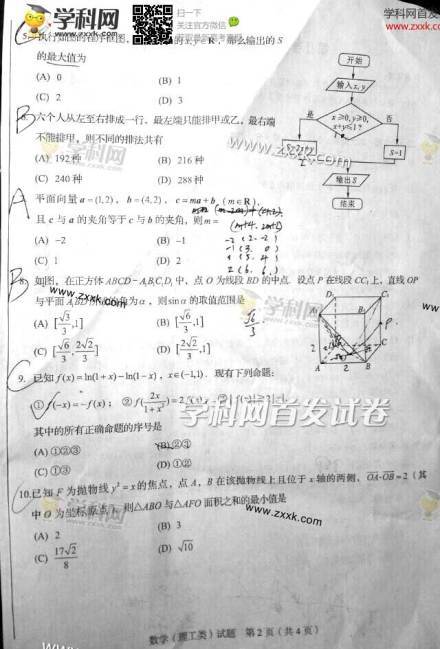 学科网
WWW.ZXXK.COM
扫一下
关注官方微信
学科网首发
www.zxxk.com
5. 执行如图的程序框图，
的x,y∈R，那么输出的S
的最大值为
(A) 0 (B) 1
(C) 2 (D) 3
开始
输入x,y
是
x≥0,y≥0,
x+y≤1?
否
S=2x+y
S=1
输出S
结束
B
六个人从左至右排成一行，最左端只能排甲或乙，最右端
不能排甲，则不同的排法共有
(A) 192种 (B) 216种
(C) 240种 (D) 288种
A
平面向量a=(1,2)，b=(4,2)，c=ma+b（m∈R），
且c与a的夹角等于c与b的夹角，则m=
(A) -2 (B) -1
(C) 1 (D) 2
B
8. 如图，在正方体ABCD-A₁B₁C₁D₁中，点O为线段BD的中点. 设点P在线段CC₁上，直线OP
与平面A₁BD所成的角为α，则sinα的取值范围是
(A) [√3/3,1] (B) [√6/3,1]
(C) [√6/3,2√2/3] (D) [2√2/3,1]
√6/3
C
9. 已知f(x)=ln(1+x)-ln(1-x)，x∈(-1,1). 现有下列命题:
①f(-x)=-f(x)；②f(2x/(1+x²))=2
学科网首发试卷
www.zxxk.com
其中的所有正确命题的序号是
(A) ①②③ (B) ②③
(C) ①③ (D) ①②
10.已知F为抛物线y²=x的焦点，点A，B在该抛物线上且位于x轴的两侧，OA·OB=2（其
中O为坐标原点），则△ABO与△AFO面积之和的最小值是
(A) 2 (B) 3
(C) 17√2/8 (D) √10
数学（理工类）试题 第2页（共4页）